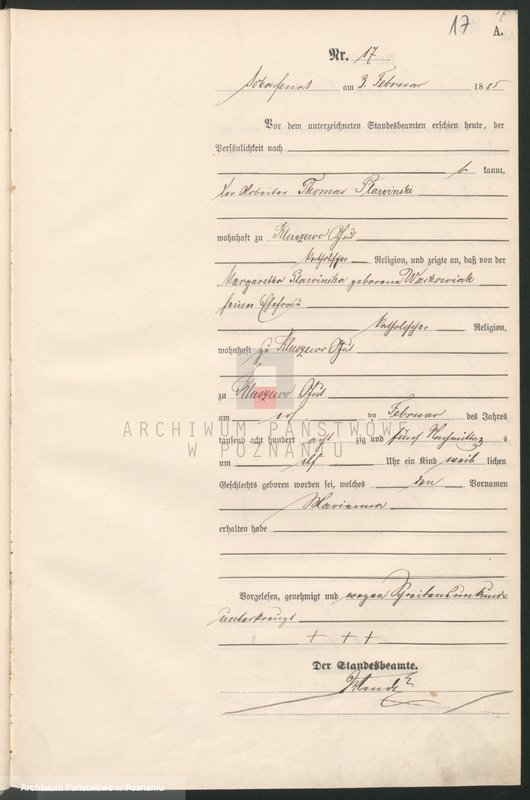 17
A.
Nr. 17
am 3. Februar 1885
Vor dem unterzeichneten Standesbeamten erschien heute, der
Persönlichkeit nach
b kannt,
der Arbeiter Thomas Slawinski
wohnhaft zu Kluszewo Gut
katholischer Religion, und zeigte an, daß von der
Margaretha Slawinska geborene Walkowiak
seiner Ehefrau
katholischer Religion,
wohnhaft zu Kluszewo Gut
zu Kluszewo Gut
am ten Februar des Jahres
tausend acht hundert acht zig und fünf Nachmittag s
um elf Uhr ein Kind weib lichen
Geschlechts geboren worden sei, welches den Vornamen
Marianna
erhalten habe
Vorgelesen, genehmigt und wegen Schreibensunkunde
unterkreuzt
+ + +
Der Standesbeamte.
ARCHIWUM PAŃSTWOWE
W POZNANIU
Archiwum Państwowe w Poznaniu